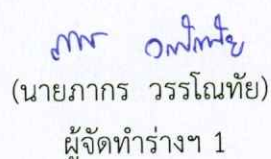 (นายภากร วรรโณทัย)
ผู้จัดทำร่างฯ 1